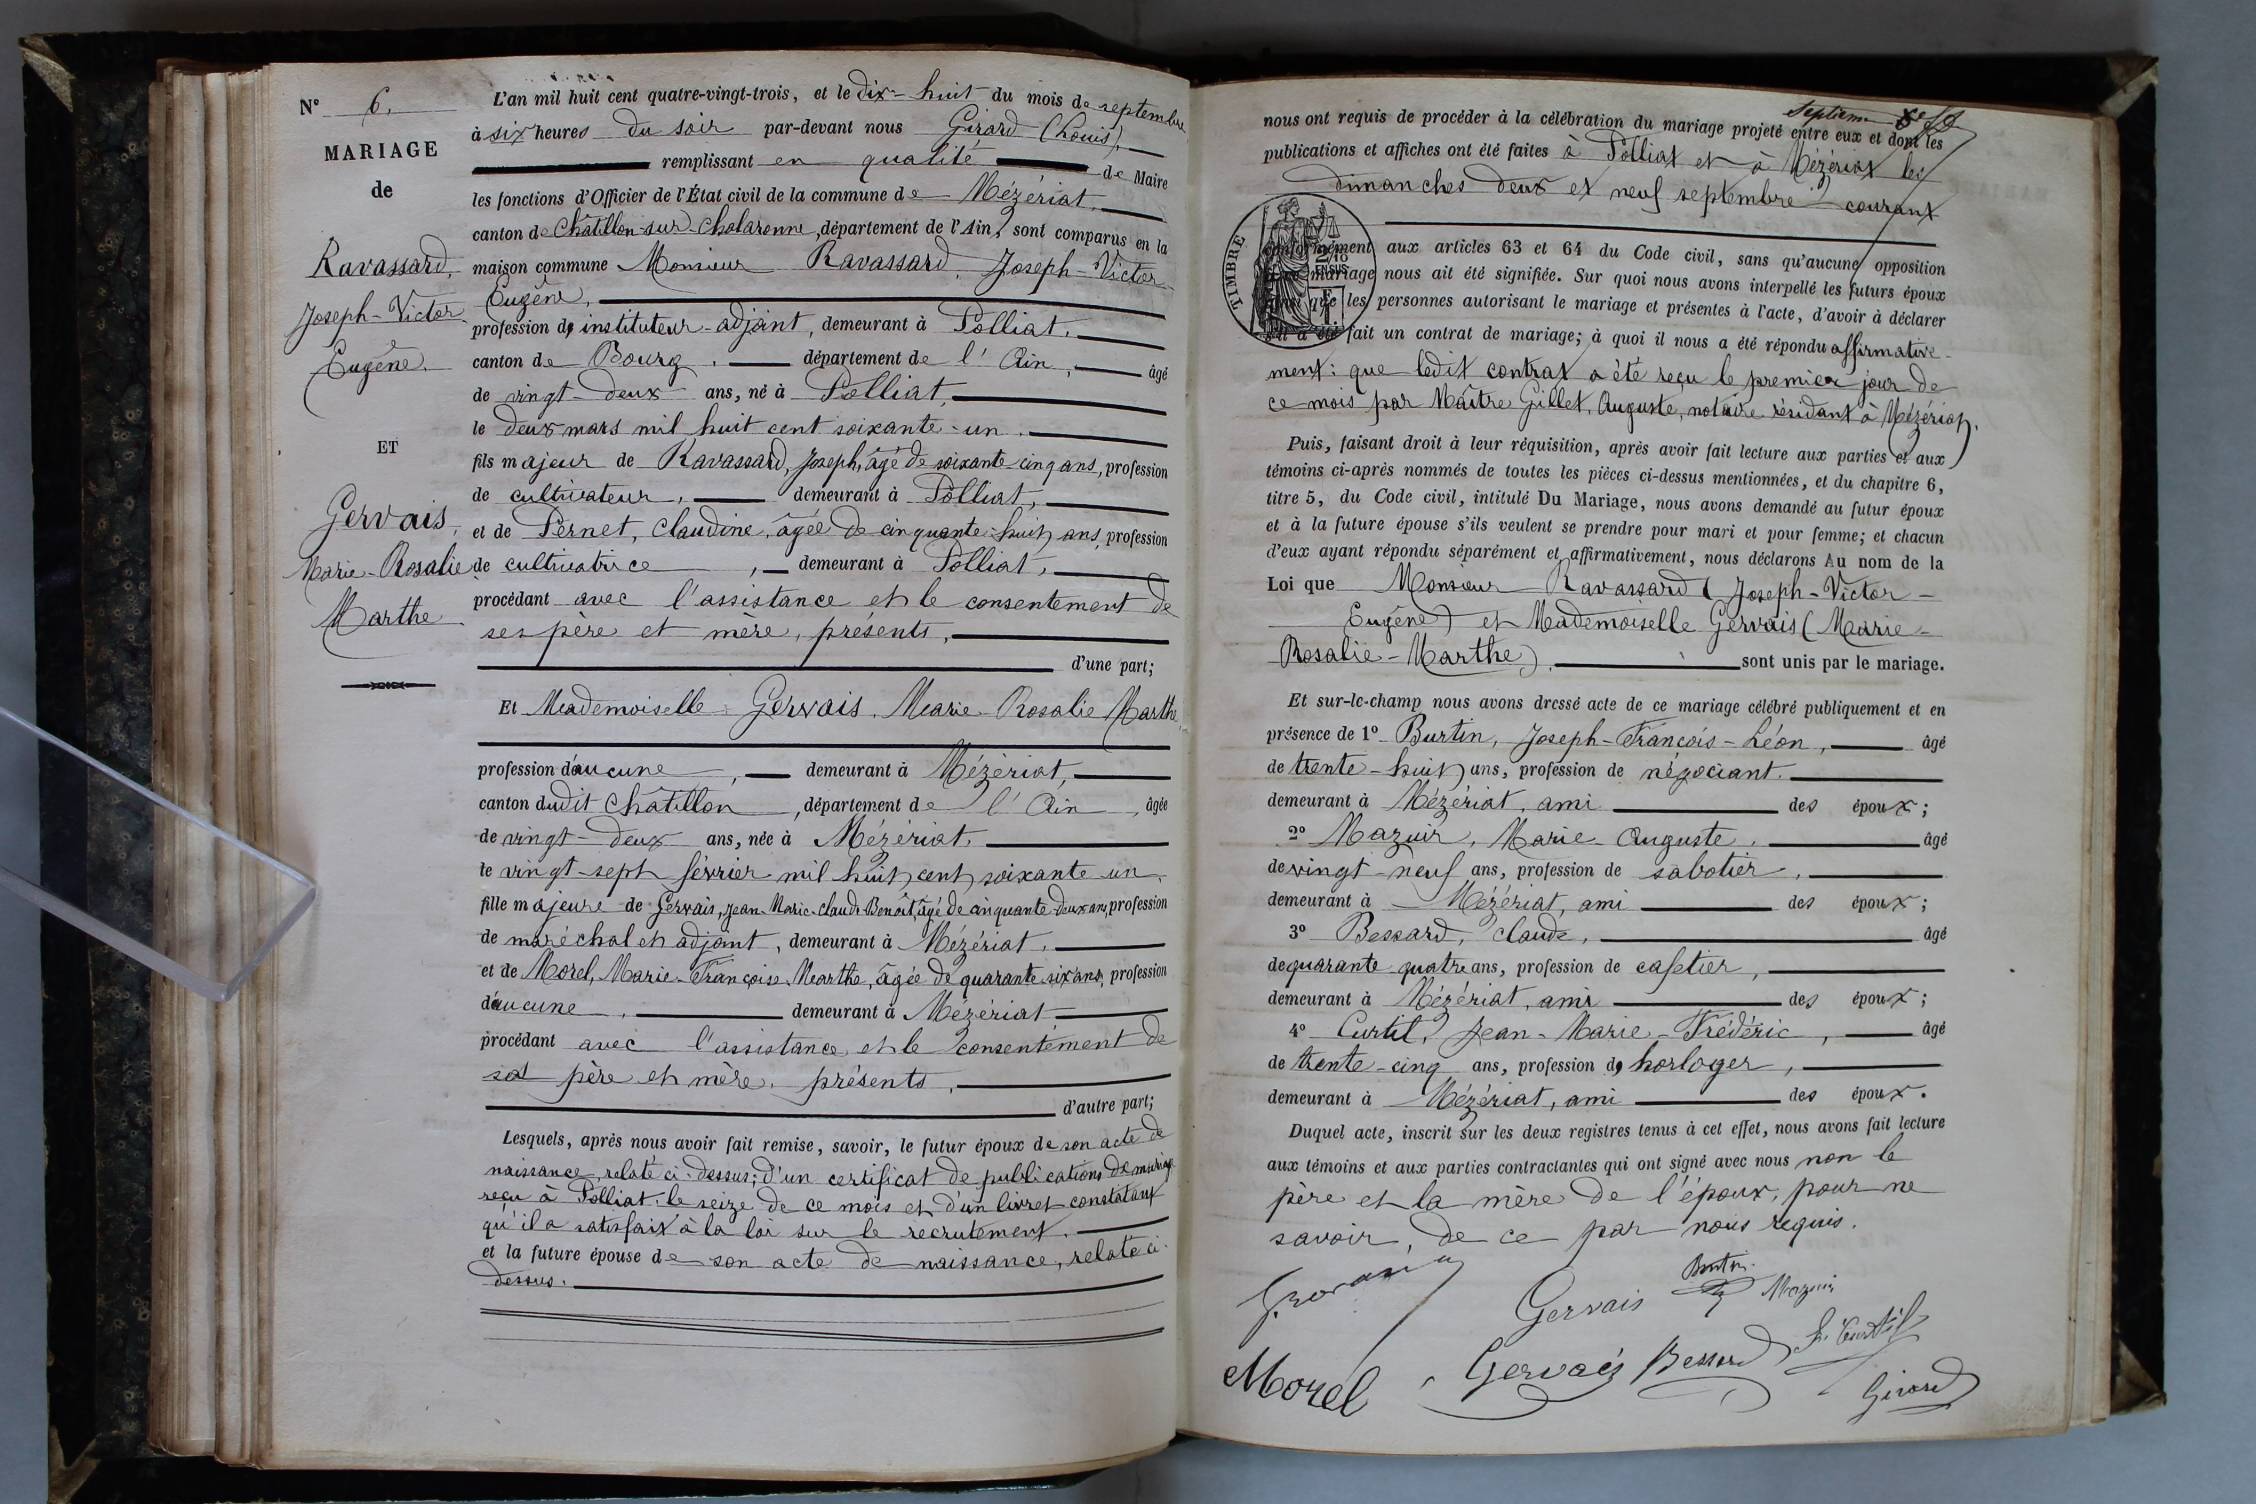 N° 6.
MARIAGE
de
Ravassard,
Joseph-Victor
Eugène.
ET
Gervais,
Marie-Rosalie
Marthe
L'an mil huit cent quatre-vingt-trois, et le dix-huit du mois de septembre
à six heures du soir par-devant nous Girard (Louis),
remplissant en qualité de Maire
les fonctions d'Officier de l'État civil de la commune de Mézériat,
canton de Châtillon-sur-Chalaronne, département de l'Ain, sont comparus en la
maison commune Monsieur Ravassard, Joseph-Victor
Eugène,
profession d' instituteur-adjoint, demeurant à Polliat,
canton de Bourg, département de l'Ain, âgé
de vingt-deux ans, né à Polliat,
le deux mars mil huit cent soixante-un.
fils majeur de Ravassard, Joseph, âgé de soixante-cinq ans, profession
de cultivateur, demeurant à Polliat,
et de Pernet, Claudine, âgée de cinquante-huit ans, profession
de cultivatrice, demeurant à Polliat,
procédant avec l'assistance et le consentement de
ses père et mère, présents,
d'une part;
Et Mademoiselle Gervais, Marie-Rosalie Marthe,
profession d'aucune, demeurant à Mézériat,
canton dudit Châtillon, département de l'Ain, âgée
de vingt-deux ans, née à Mézériat,
le vingt-sept février mil huit cent soixante-un,
fille majeure de Gervais, Jean-Marie-Claude-Benoît, âgé de cinquante-deux ans, profession
de maréchal et adjoint, demeurant à Mézériat,
et de Morel, Marie-Françoise-Marthe, âgée de quarante-six ans, profession
d'aucune, demeurant à Mézériat
procédant avec l'assistance et le consentement de
ses père et mère, présents,
d'autre part;
Lesquels, après nous avoir fait remise, savoir, le futur époux de son acte de
naissance, relaté ci-dessus; d'un certificat de publications de mariage
reçu à Polliat le seize de ce mois et d'un livret constatant
qu'il a satisfait à la loi sur le recrutement.
et la future épouse de son acte de naissance, relaté ci-
dessus.
septième
nous ont requis de procéder à la célébration du mariage projeté entre eux et dont les
publications et affiches ont été faites à Polliat et à Mézériat les
dimanches deux et neuf septembre courant
TIMBRE
2/10
EN SUS
conformément aux articles 63 et 64 du Code civil, sans qu'aucune opposition
mariage nous ait été signifiée. Sur quoi nous avons interpellé les futurs époux
ainsi que les personnes autorisant le mariage et présentes à l'acte, d'avoir à déclarer
s'il a été fait un contrat de mariage; à quoi il nous a été répondu affirmative-
ment: que ledit contrat a été reçu le premier jour de
ce mois par Maître Gillet, Auguste, notaire résidant à Mézériat.
Puis, faisant droit à leur réquisition, après avoir fait lecture aux parties et aux
témoins ci-après nommés de toutes les pièces ci-dessus mentionnées, et du chapitre 6,
titre 5, du Code civil, intitulé Du Mariage, nous avons demandé au futur époux
et à la future épouse s'ils veulent se prendre pour mari et pour femme; et chacun
d'eux ayant répondu séparément et affirmativement, nous déclarons Au nom de la
Loi que Monsieur Ravassard (Joseph-Victor-
Eugène) et Mademoiselle Gervais (Marie-
Rosalie-Marthe), sont unis par le mariage.
Et sur-le-champ nous avons dressé acte de ce mariage célébré publiquement et en
présence de 1° Burtin, Joseph-François-Léon, âgé
de trente-huit ans, profession de négociant.
demeurant à Mézériat, ami des époux;
2° Mazuir, Marie-Auguste, âgé
de vingt-neuf ans, profession de sabotier,
demeurant à Mézériat, ami des époux;
3° Bessard, Claude, âgé
de quarante quatre ans, profession de cafetier,
demeurant à Mézériat, ami des époux;
4° Curtil, Jean-Marie-Frédéric, âgé
de trente-cinq ans, profession d' horloger,
demeurant à Mézériat, ami des époux.
Duquel acte, inscrit sur les deux registres tenus à cet effet, nous avons fait lecture
aux témoins et aux parties contractantes qui ont signé avec nous non le
père et la mère de l'époux, pour ne
savoir, de ce par nous requis.
Burtin
Gervais Mazuir
Curtil
Morel Gervais Bessard
Girard